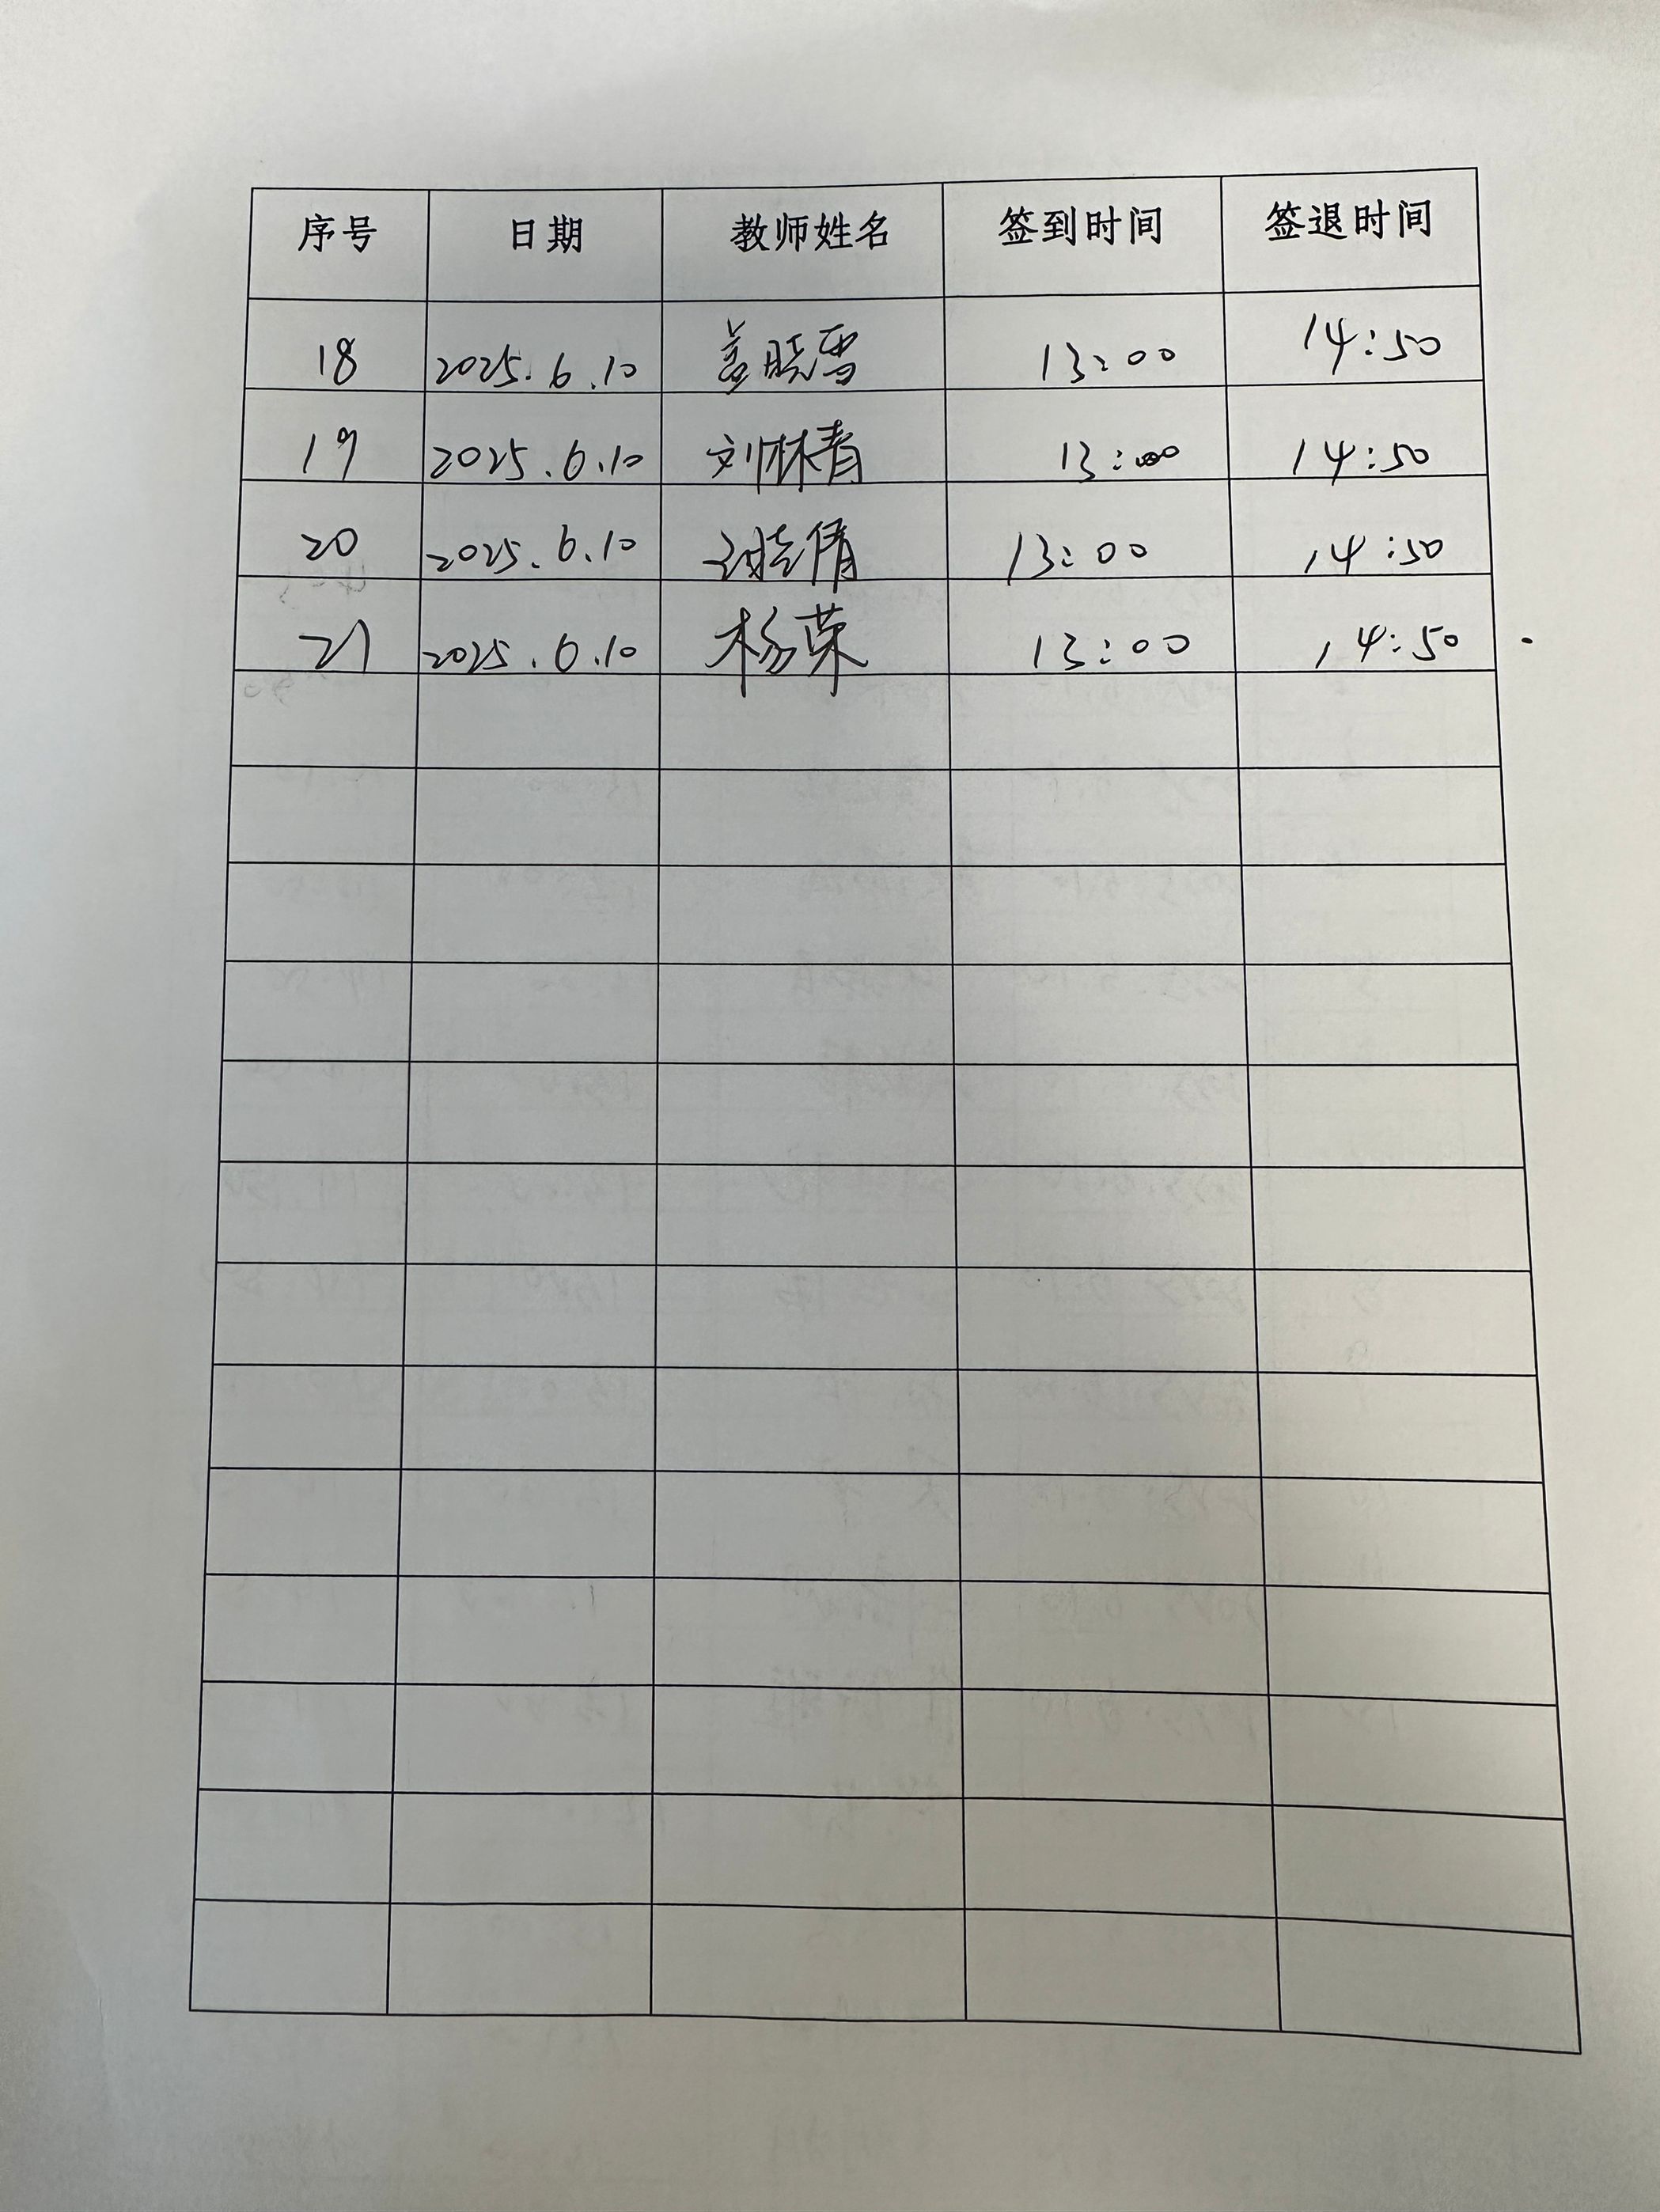 序号 日期 教师姓名 签到时间 签退时间
18 2025.6.10 姜晓雪 13:00 14:50
19 2025.6.10 刘林青 13:00 14:50
20 2025.6.10 13:00 14:50
21 2025.6.10 杨荣 13:00 14:50